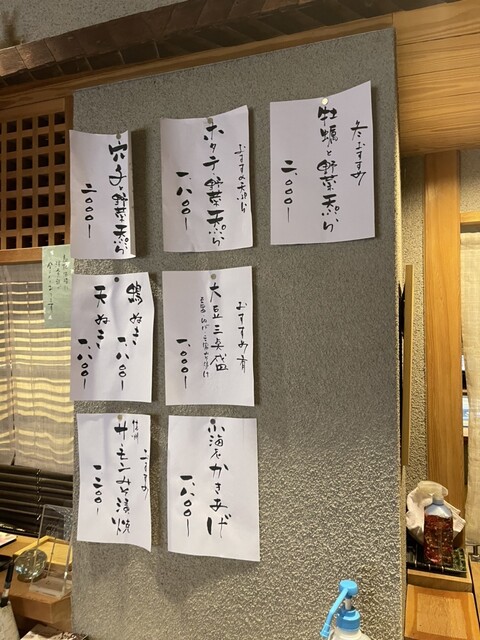 冬おすすめ
牡蠣と野菜天ぷら
二、〇〇〇ー
おすすめ天ぷら
ホタテと野菜天ぷら
一、八〇〇ー
穴子と野菜天ぷら
二、〇〇〇ー
おすすめ肴
大豆三点盛
一、〇〇〇ー
鴨ぬき
一、八〇〇ー
天ぬき
一、八〇〇ー
小海老かきあげ
一、八〇〇ー
おすすめ
信州
サーモンみそ漬焼
一、二〇〇ー